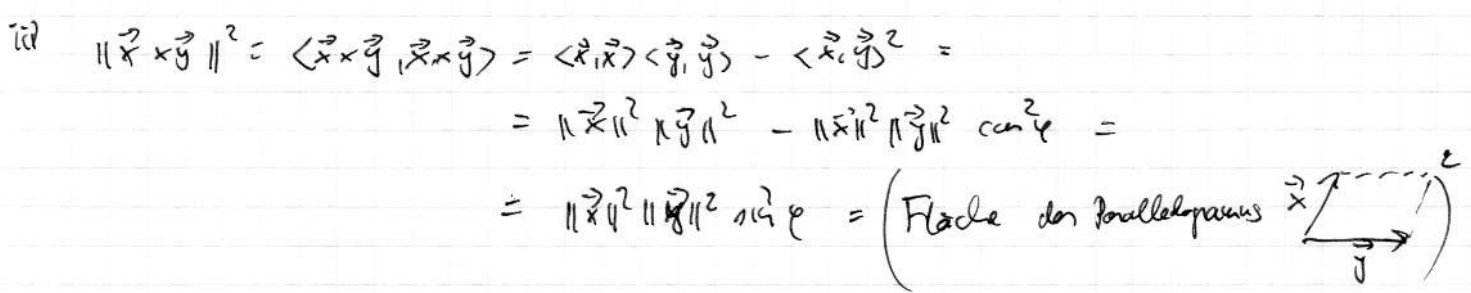 iii) ‖x⃗ × y⃗‖² = ⟨x⃗ × y⃗, x⃗ × y⃗⟩ = ⟨x⃗, x⃗⟩⟨y⃗, y⃗⟩ − ⟨x⃗, y⃗⟩² =
= ‖x⃗‖² ‖y⃗‖² − ‖x⃗‖² ‖y⃗‖² cos²φ =
= ‖x⃗‖² ‖y⃗‖² sin²φ = (Fläche des Parallelogramms x⃗ y⃗)²